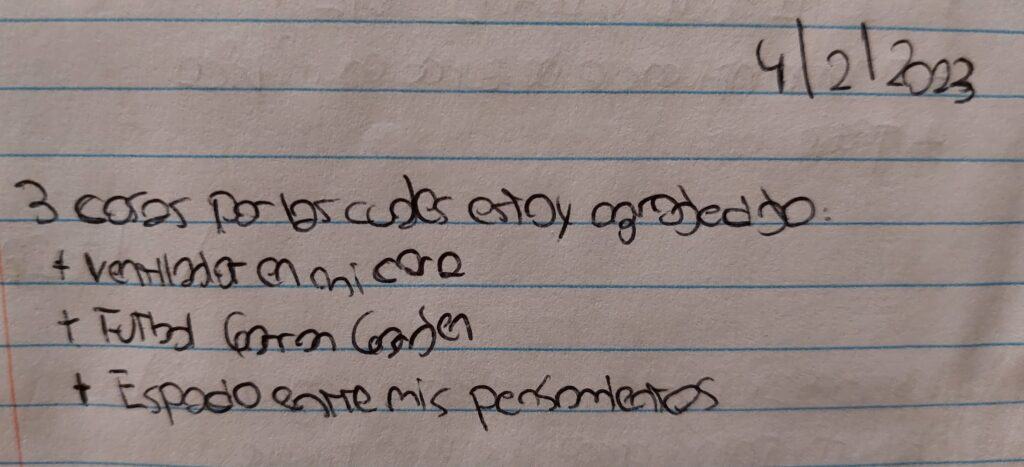 4/2/2023
3 cosas por las cuales estoy agradecido:
+ Ventilador en mi cara
+ Futbol
+ Espacio entre mis pensamientos